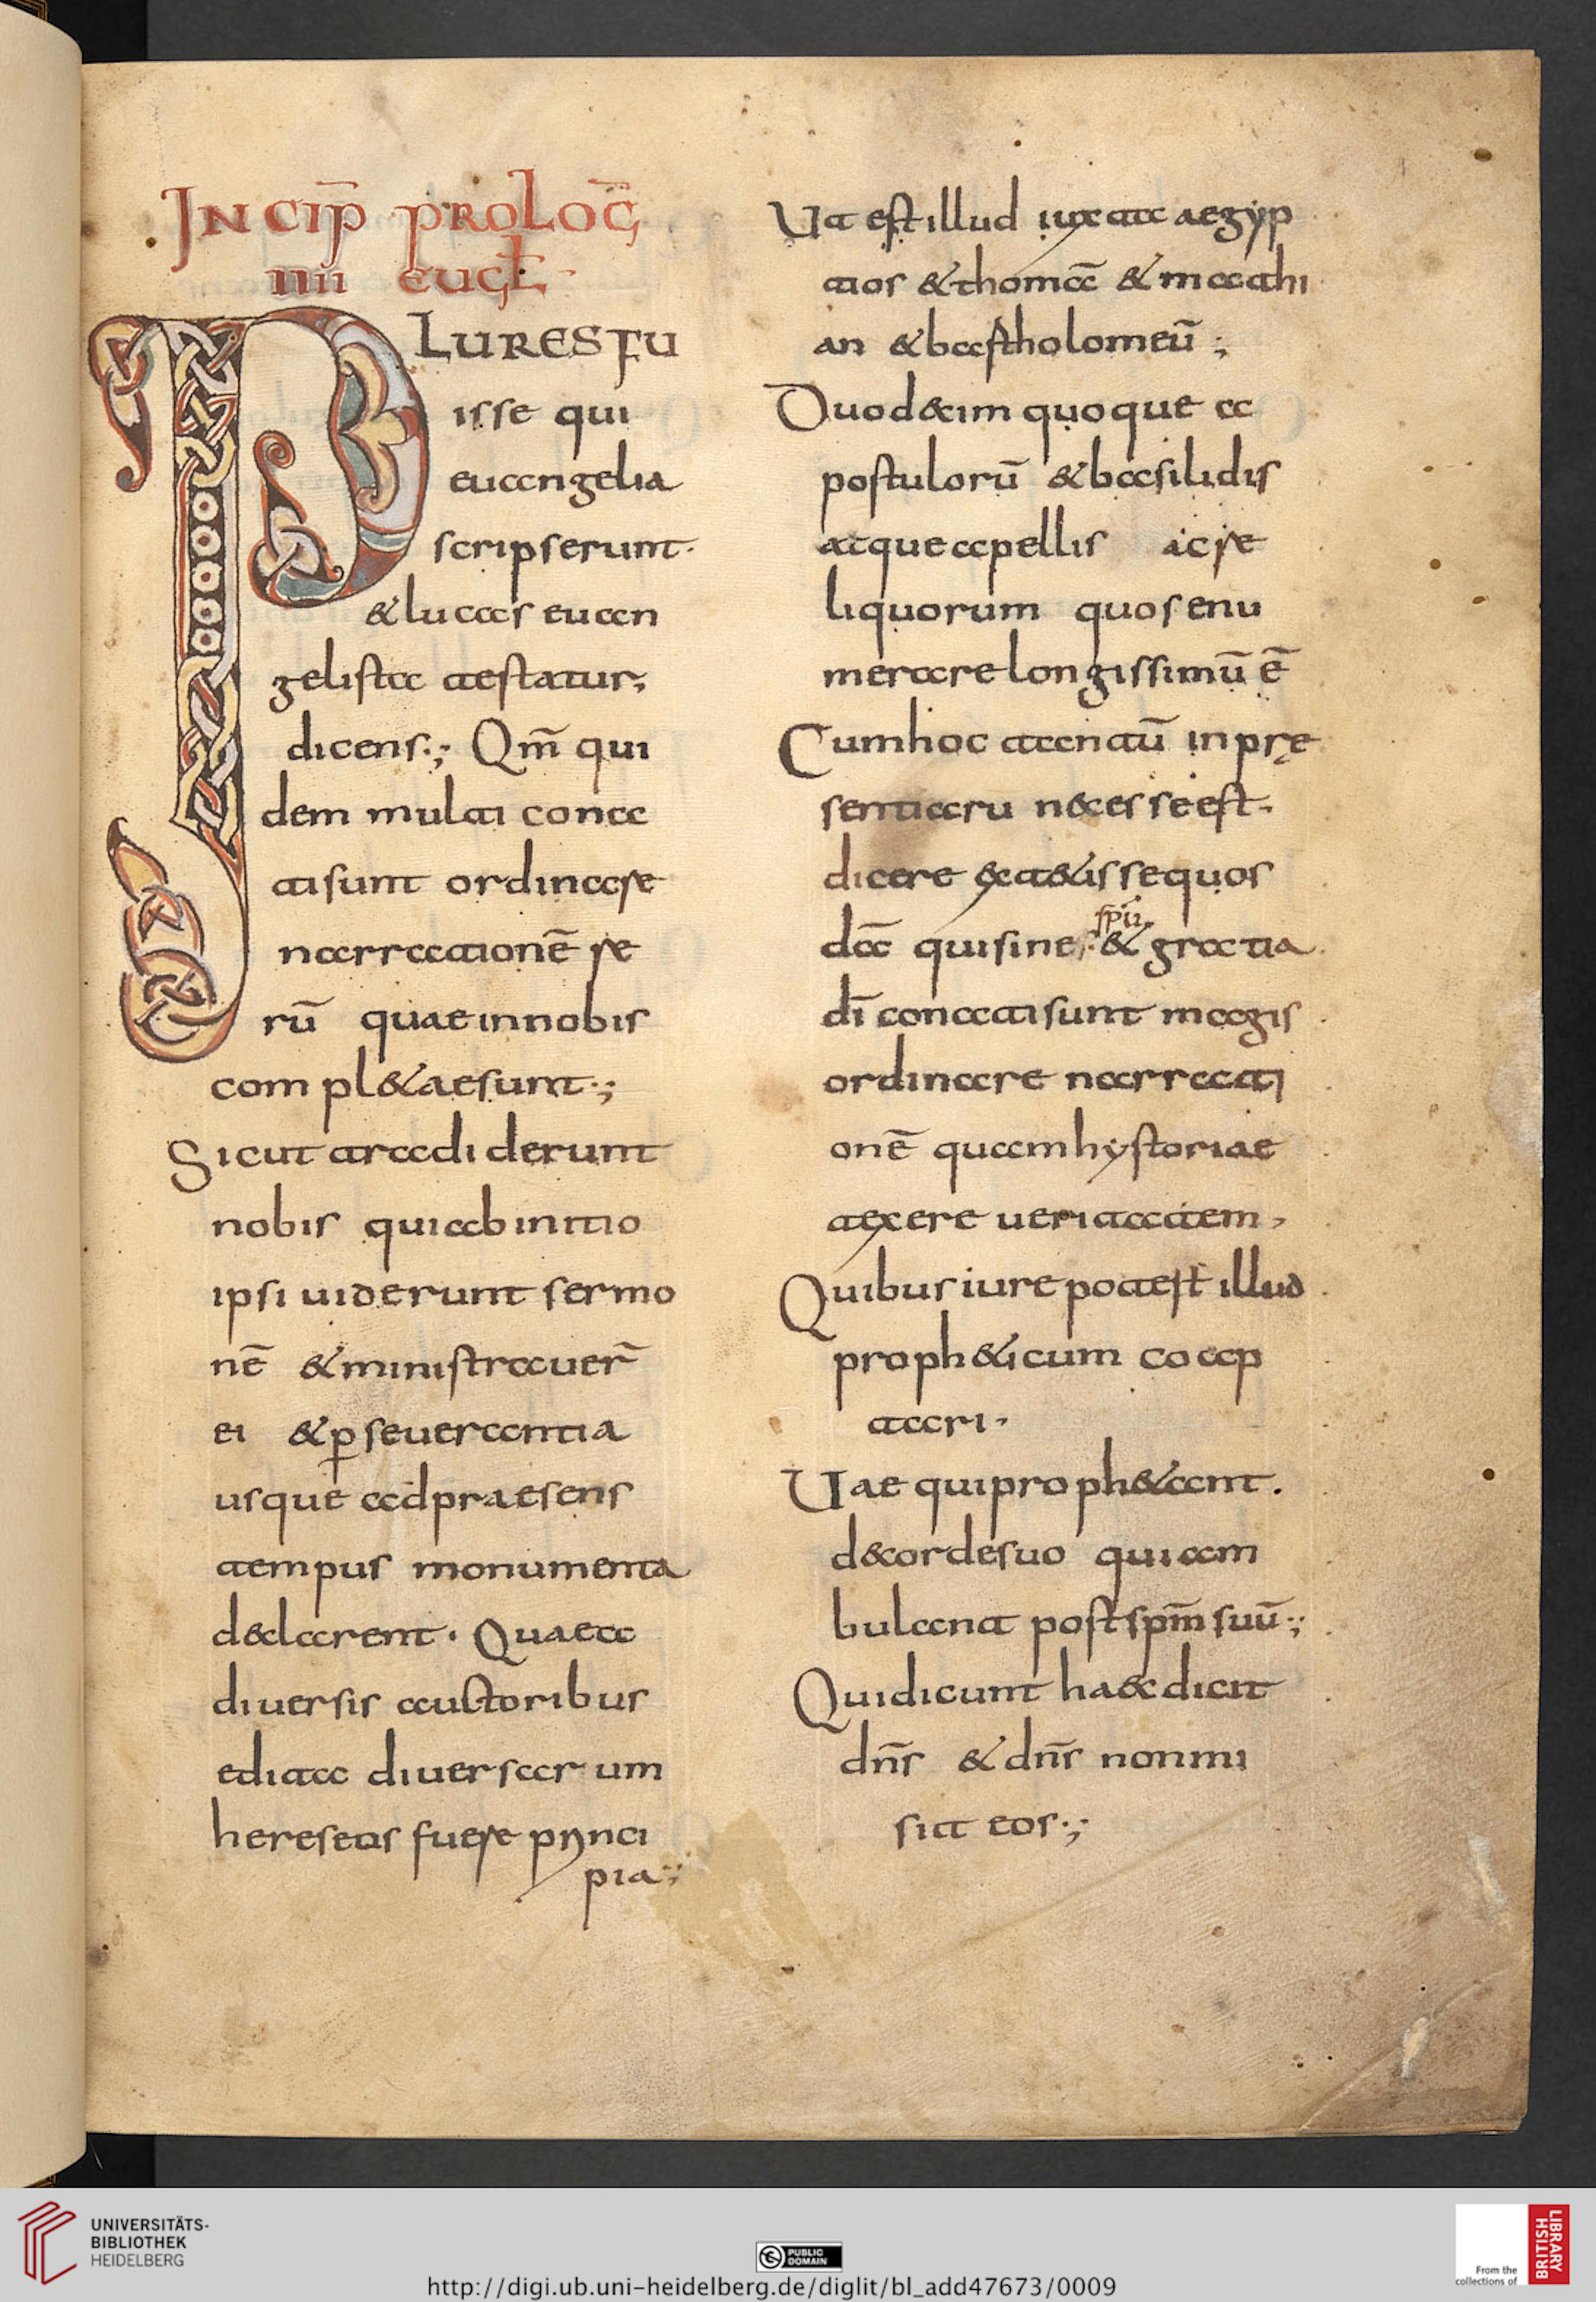 INCIP̄ PROLOḠ
IIII EUGL̄
PLURES FU
isse qui
euangelia
scripserunt·
& lucas euan
gelista testatur;
dicens:; Qm̄ qui
dem multi cona
ti sunt ordinare
narrationē re
rū quae in nobis
compl&ae sunt·;
Sicut tradiderunt
nobis qui ab initio
ipsi uiderunt sermo
nē & ministrauer̄
ei & ꝑseuerantia
usque ad praesens
tempus monumenta
declarent· Quae a
diuersis auctoribus
edita diuersarum
hereseos fuere princi
pia:;
Ut est illud iuxta aegyp
tios & thomā & mathi
an & bartholomeū;
Duodecim quoque a
postulorū & basilidis
atque apellis ac re
liquorum quos enu
merare longissimū ē
Cum hoc tantū in prę
sentiaru necesse est·
dicere extitisse quos
dā qui sine sp̄u & gratia
dī conati sunt magis
ordinare narrati
onē quam hystoriae
texere ueritatem,
Quibus iure potest illud
proph&icum coap
tari·
Uae qui proph&ant.
de corde suo qui am
bulant post sp̄m suū:;
Qui dicunt haec dicit
dn̄s & dn̄s non mi
sit eos·;
UNIVERSITÄTS-
BIBLIOTHEK
HEIDELBERG
PUBLIC
DOMAIN
http://digi.ub.uni-heidelberg.de/diglit/bl_add47673/0009
From the
collections of
BRITISH
LIBRARY